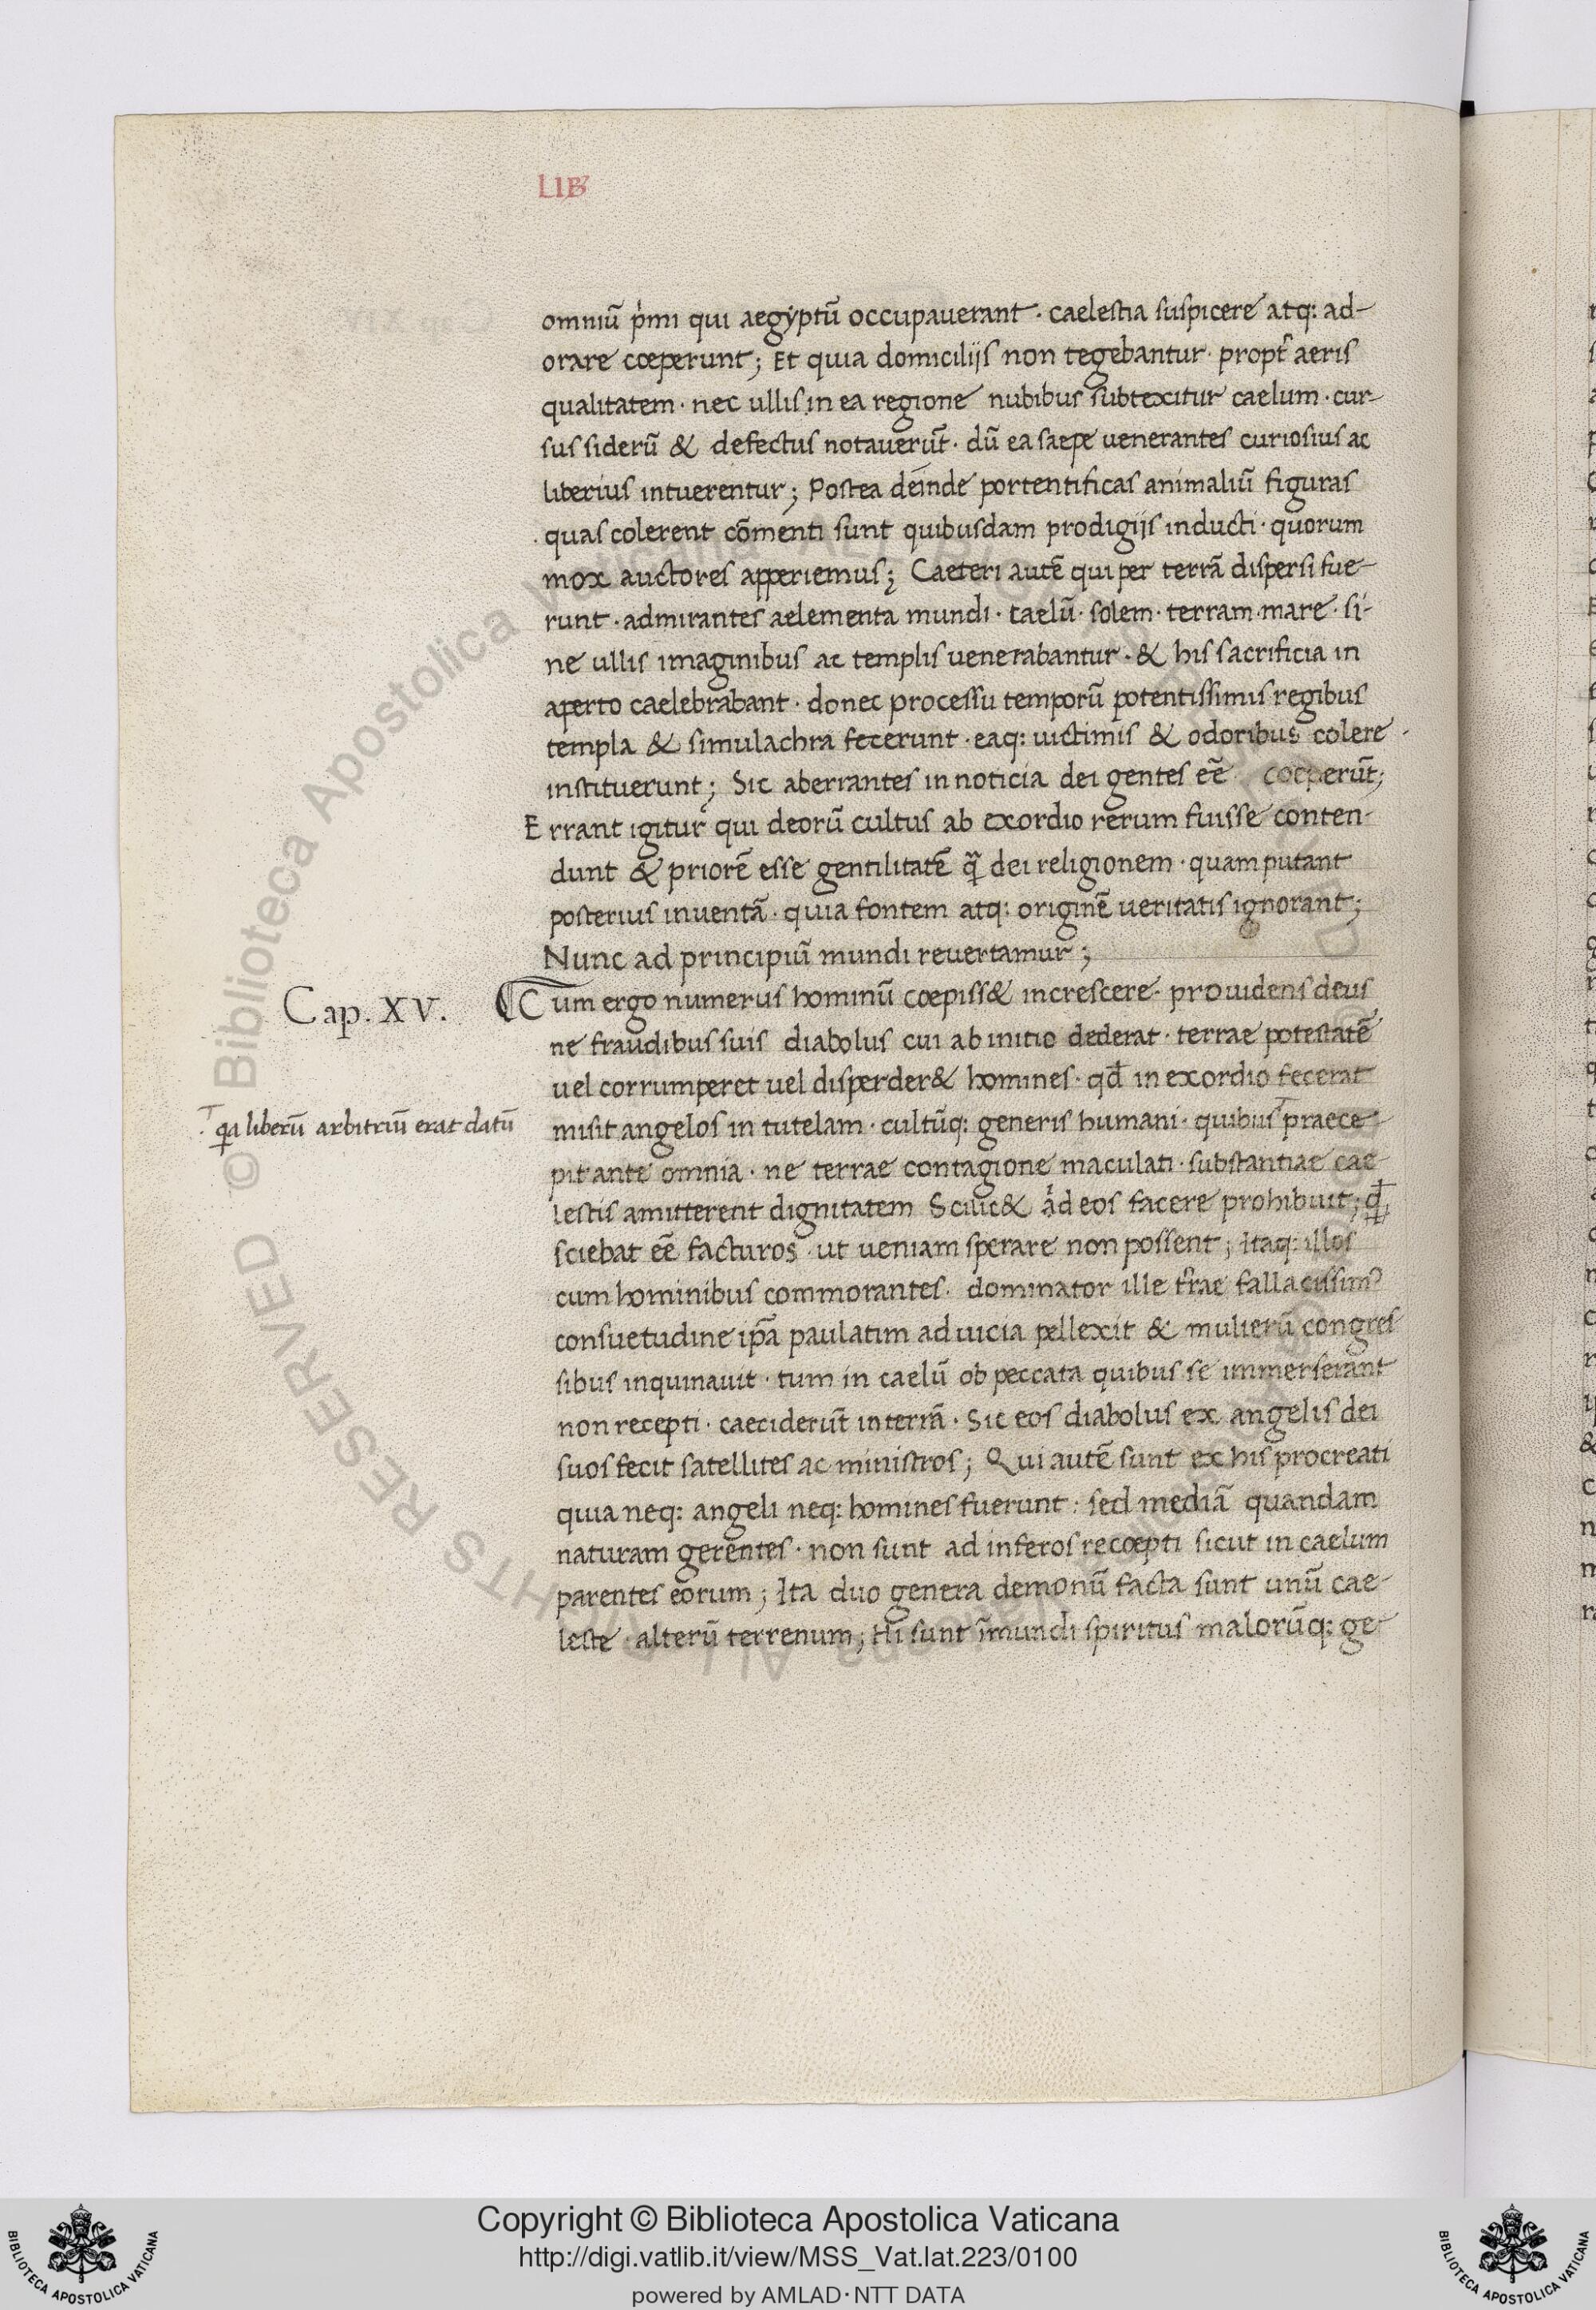 LIB
omniū pͥmi qui aegẏptū occupauerant · caelestia suspicere atq: ad-
orare cœperunt; Et quia domicilijs non tegebantur · propt̄ aeris
qualitatem · nec ullis in ea regione nubibus subtexitur caelum · cur-
sus siderū & defectus notauerūt · dū ea saepe uenerantes curiosius ac
liberius intuerentur; Postea deinde portentificas animaliū figuras
quas colerent cōmenti sunt quibusdam prodigijs inducti · quorum
mox auctores apperiemus; Caeteri autē qui per terrā dispersi fue-
runt · admirantes aelementa mundi · caelū · solem · terram · mare · si-
ne ullis imaginibus ac templis uenerabantur · & his sacrificia in
aperto caelebrabant · donec processu temporū potentissimis regibus
templa & simulachra fecerunt · eaq: uictimis & odoribus colere
instituerunt; Sic aberrantes in noticia dei gentes eē coeperūt;
Errant igitur qui deorū cultus ab exordio rerum fuisse conten-
dunt & priorē esse gentilitatē q̃ dei religionem · quam putant
posterius inuentā · quia fontem atq: originē ueritatis ignorant;
Nunc ad principiū mundi reuertamur;
Cap. XV.
Cum ergo numerus hominū cœpiss& increscere · prouidens deus
ne fraudibus suis diabolus cui ab initio dederat · terrae potestatē
uel corrumperet uel disperder& homines · qd̄ in exordio fecerat
qa liberū arbitriū erat datū
misit angelos in tutelam · cultūq: generis humani · quibus praece-
pit ante omnia · ne terrae contagione maculati · substantiae cae-
lestis amitterent dignitatem Scilic& id eos facere prohibuit; qd̄
sciebat eē facturos · ut ueniam sperare non possent; Itaq: illos
cum hominibus commorantes · dominator ille tr̄ae fallacissimꝰ
consuetudine ip̄a paulatim ad uicia pellexit & mulierū congres
sibus inquinauit · tum in caelū ob peccata quibus se immerserant
non recepti · caeciderūt in terrā · Sic eos diabolus ex angelis dei
suos fecit satellites ac ministros; Qui autē sunt ex his procreati
quia neq: angeli neq: homines fuerunt : sed mediā quandam
naturam gerentes · non sunt ad inferos recœpti sicut in caelum
parentes eorum; Ita duo genera demonū facta sunt unū cae-
leste · alterū terrenum; Hi sunt īmundi spiritus malorūq: ge-
Copyright © Biblioteca Apostolica Vaticana
http://digi.vatlib.it/view/MSS_Vat.lat.223/0100
powered by AMLAD·NTT DATA